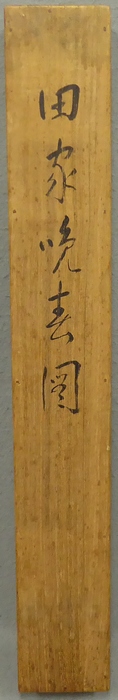 田家晩春図